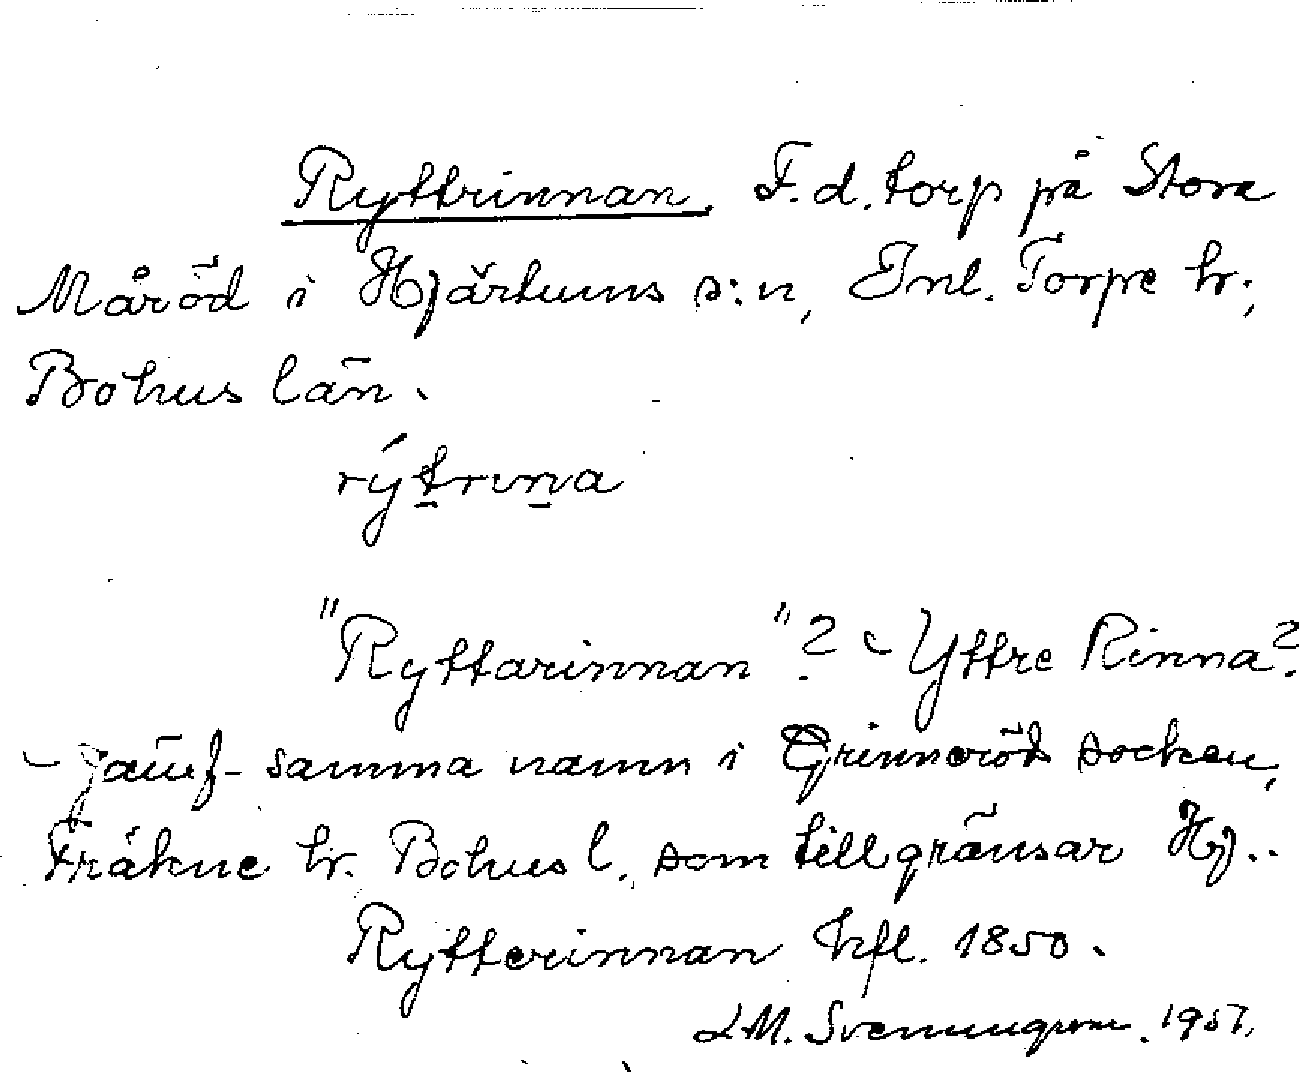 Ryttrinnan. F.d. torp på Stora
Måröd i Hjärtums s:n, Inl. Torpe hr.,
Bohus län.
rýtrına
"Ryttarinnan"? - Yttre Rinna?
- Jämf- samma namn i Grinneröds socken,
Fräkne hr. Bohus l., som tillgränsar Hj..
Rytterinnan hfl. 1850.
L M. Svenungsson. 1957.